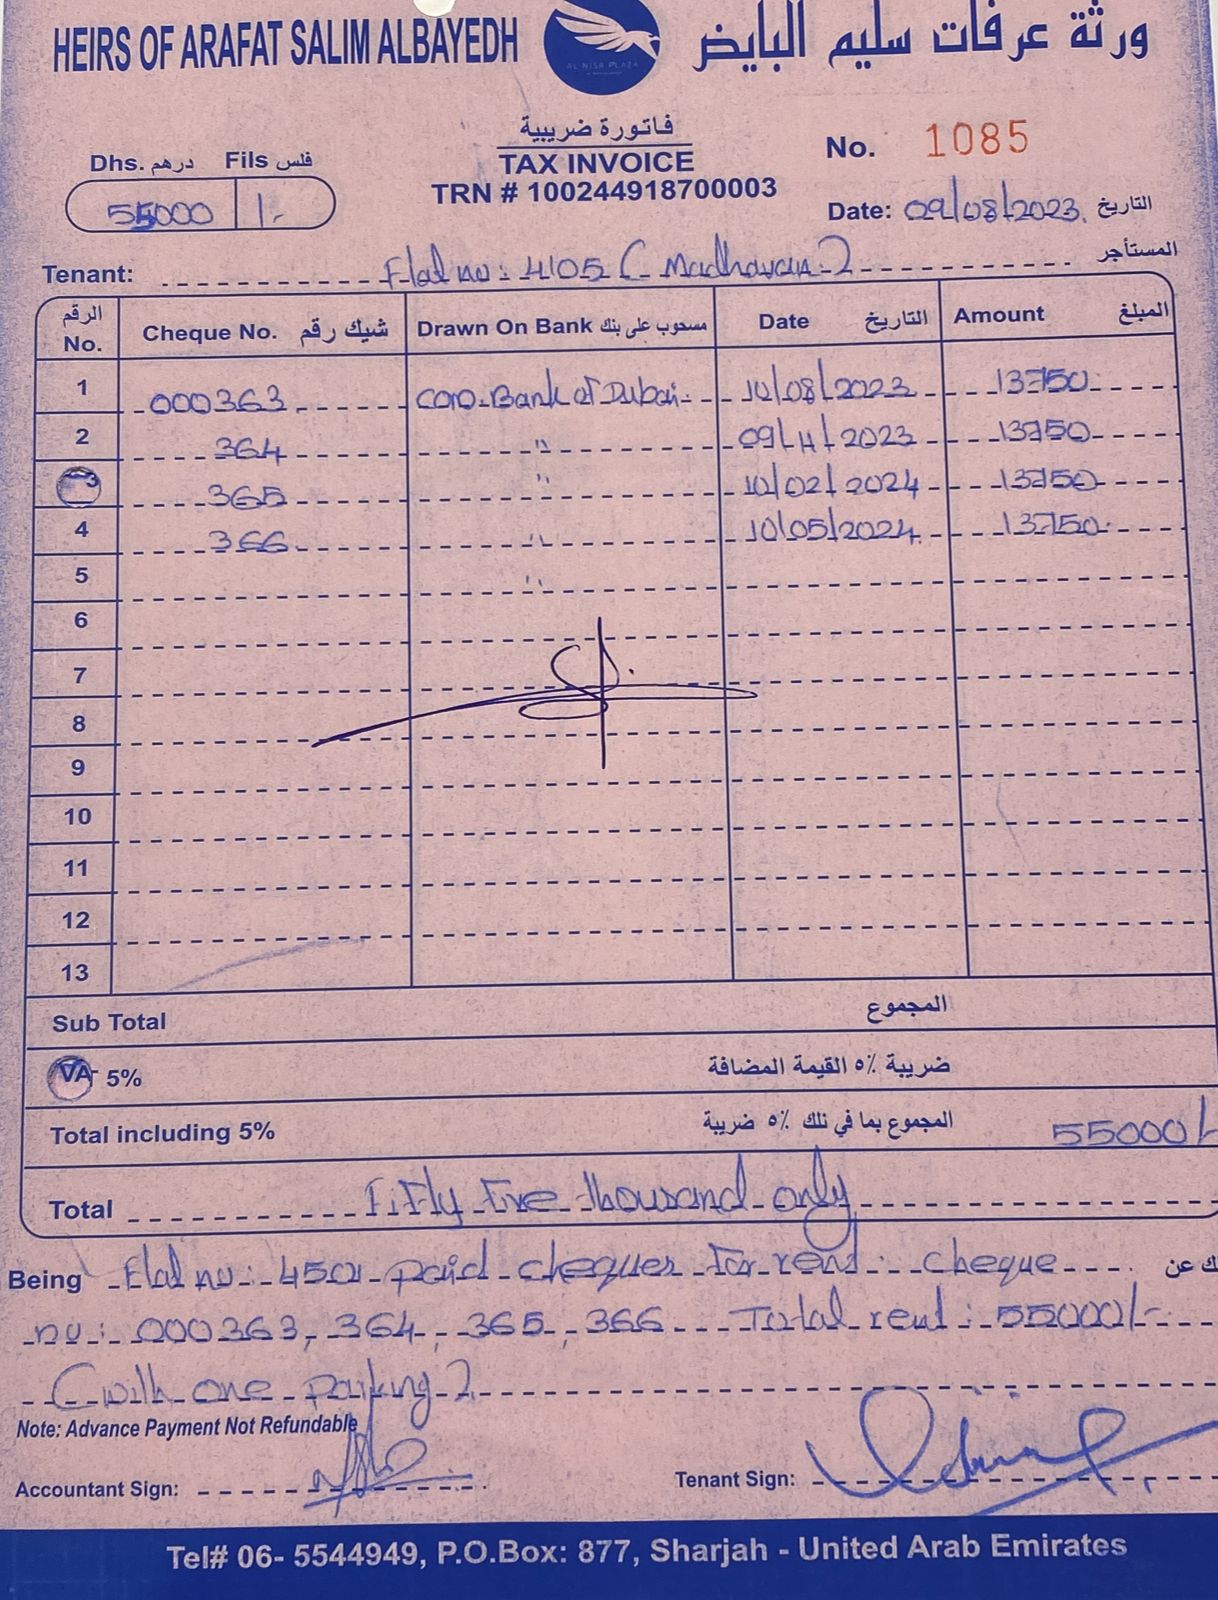 HEIRS OF ARAFAT SALIM ALBAYEDH
ورثة عرفات سليم البايض
AL NISR PLAZA
فاتورة ضريبية
TAX INVOICE
TRN # 100244918700003
No. 1085
Dhs. درهم Fils فلس
55000 /-
Date: 09/08/2023 التاريخ
Tenant: Flat no: 4105 ( Madhavan ) المستأجر
الرقم No. Cheque No. شيك رقم Drawn On Bank مسحوب على بنك Date التاريخ Amount المبلغ
1 000363 Bank of Dubai 10/08/2023 13750
2 364 " 09/11/2023 13750
3 365 " 10/02/2024 13750
4 366 " 10/05/2024 13750
5 "
6
7
8
9
10
11
12
13
Sub Total المجموع
VA 5% ضريبة ٥٪ القيمة المضافة
Total including 5% المجموع بما في ذلك ٥٪ ضريبة 55000/
Total Fifty Five thousand only
Being Flat no: paid cheques for rent: cheque ك عن
no: 000363, 364, 365, 366 Total rent: 55000/-
( with one parking )
Note: Advance Payment Not Refundable
Accountant Sign:
Tenant Sign:
Tel# 06- 5544949, P.O.Box: 877, Sharjah - United Arab Emirates